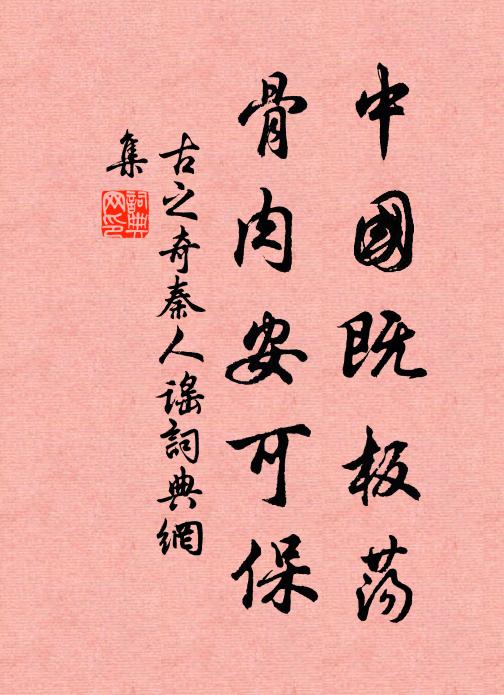 中國既板荡
骨肉安可保
古之奇秦人谣詞典網
集
詞典
网印